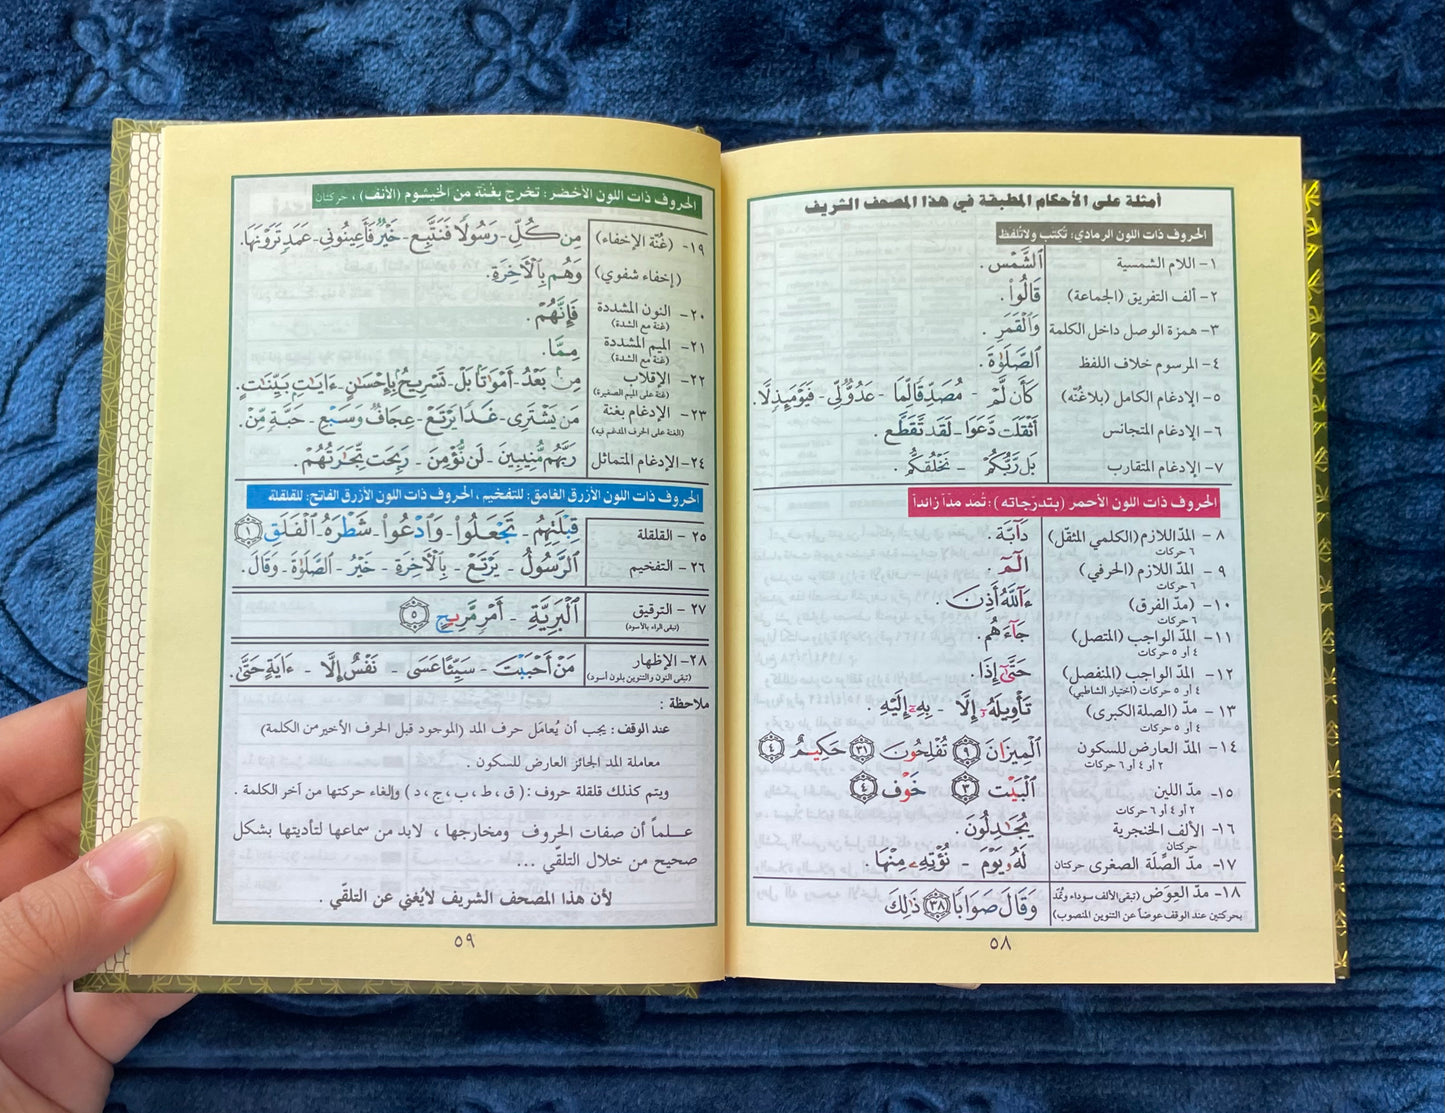 أمثلة على الأحكام المطبقة في هذا المصحف الشريف
الحروف ذات اللون الرمادي: تُكتب ولا تُلفظ
١- اللام الشمسية ٱلشَّمْسَ.
٢- ألف التفريق (الجماعة) قَالُواْ.
٣- همزة الوصل داخل الكلمة وَٱلْقَمَرَ.
٤- المرسوم خلاف اللفظ ٱلصَّلَوٰةَ.
٥- الإدغام الكامل (بلاغنّه) كَأَن لَّمْ - مُصَدِّقٗا لِّمَا - عَدُوّٞ لِّي - فَيَوْمَئِذٖ لَّا.
٦- الإدغام المتجانس أَثْقَلَت دَّعَوَا - لَقَد تَّقَطَّعَ.
٧- الإدغام المتقارب بَل رَّبُّكُمْ - نَخْلُقكُّم.
الحروف ذات اللون الأحمر (بتدرجاته): تُمَد مدّاً زائداً
٨- المدّ اللازم (الكلمي المثقل) دَآبَّة.
٦ حركات
٩- المدّ اللازم (الحرفي) الٓمٓ.
٦ حركات
١٠- (مدّ الفرق) ءَآللَّهُ أَذِنَ.
٦ حركات
١١- المدّ الواجب (المتصل) جَآءَهُم.
٤ أو ٥ حركات
١٢- المدّ الواجب (المنفصل) حَتَّىٰٓ إِذَا.
٤ أو ٥ حركات (اختيار الشاطبي)
١٣- مدّ (الصلة الكبرى) تَأْوِيلَهُۥٓ إِلَّا - بِهِۦٓ إِلَيْهِ.
٤ أو ٥ حركات
١٤- المدّ العارض للسكون ٱلْمِيزَانَ ٩ تُفْلِحُونَ ٣١ حَكِيمٌ ٤
٢ أو ٤ أو ٦ حركات
١٥- مدّ اللين ٱلْبَيْتِ ٣ خَوْفٍ ٤
٢ أو ٤ أو ٦ حركات
١٦- الألف الخنجرية يُجَٰدِلُونَ.
حركتان
١٧- مدّ الصِّلَة الصغرى حركتان لَهُۥ يَوْمَ - نُؤْتِهِۦ مِنْهَا.
١٨- مدّ العِوَض (تبقى الألف سوداء وتُمَدّ وَقَالَ صَوَابٗا ٣٨ ذَٰلِكَ
بحركتين عند الوقف عوضاً عن التنوين المنصوب)
٥٨
الحروف ذات اللون الأخضر: تخرج بغُنّة من الخيشوم (الأنف)، حركتان
١٩- (غُنّة الإخفاء) مِن كُلِّ - رَسُولٗا فَنَتَّبِعَ - خَيْرٞ فَأَعِينُونِي - عَمَدٖ تَرَوْنَهَا.
(إخفاء شفوي) وَهُم بِٱلْأٓخِرَةِ.
٢٠- النون المشددة فَإِنَّهُمْ.
(غنة مع الشدة)
٢١- الميم المشددة مِمَّا.
(غنة مع الشدة)
٢٢- الإقلاب مِنۢ بَعْدُ - أَمْوَٰتَۢا بَلْ - تَسْرِيحُۢ بِإِحْسَٰنٖ - ءَايَٰتِۭ بَيِّنَٰتٖ.
(غنة على الميم الصغيرة)
٢٣- الإدغام بغنة مَن يَشْتَرِى - غَدٗا يَرْتَعْ - عِجَافٞ وَسَبْعِ - حَبَّةٖ مِّنْ.
(الغنة على الحرف المدغم فيه)
٢٤- الإدغام المتماثل رَبَّهُم مُّنِيبِينَ - لَن نُّؤْمِنَ - رَبِحَت تِّجَٰرَتُهُمْ.
الحروف ذات اللون الأزرق الغامق: للتفخيم، الحروف ذات اللون الأزرق الفاتح: للقلقلة
٢٥- القلقلة قِبْلَتِهِمُ - تَجْعَلُواْ - وَٱدْعُواْ - شَطْرَهُ ٱلْفَلَقِ ١
٢٦- التفخيم ٱلرَّسُولُ - يَرْتَعْ - بِٱلْأٓخِرَةِ - خَيْرُ - ٱلصَّلَوٰةَ وَقَالَ.
٢٧- الترقيق ٱلْبَرِيَّةِ - أَمْرٖ مَّرِيجٍ ٥
(تبقى الراء بالأسود)
٢٨- الإظهار مَنْ أَحْبَبْتَ - سَيِّئًا عَسَى - نَفْسٌ إِلَّا - ءَايَةٍ حَتَّىٰ.
(تبقى النون والتنوين بلون أسود)
ملاحظة:
عند الوقف: يجب أن يُعامَل حرف المد (الموجود قبل الحرف الأخير من الكلمة)
معاملة المد الجائز العارض للسكون.
ويتم كذلك قلقلة حروف: (ق، ط، ب، ج، د) وإلغاء حركتها من آخر الكلمة.
علماً أن صفات الحروف ومخارجها، لابد من سماعها لتأديتها بشكل
صحيح من خلال التلقّي ...
لأن هذا المصحف الشريف لايُغني عن التلقّي.
٥٩